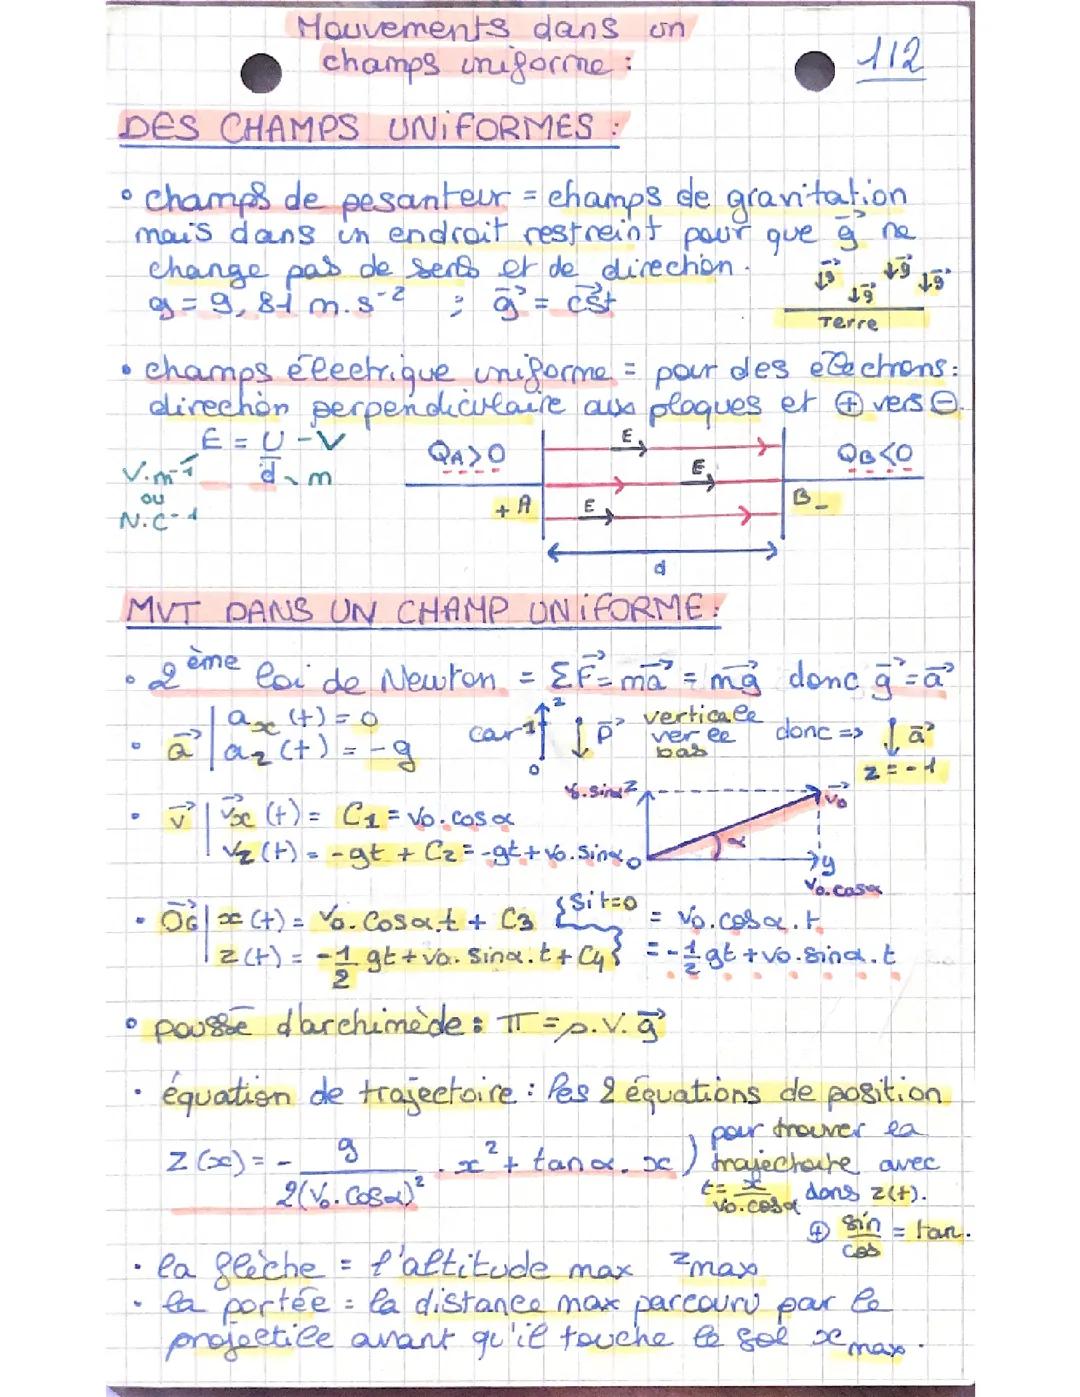 Mouvements dans un
champs uniforme :
112
DES CHAMPS UNIFORMES :
• champs de pesanteur = champs de gravitation
mais dans un endroit restreint pour que g⃗ ne
change pas de sens et de direction.
g = 9,81 m.s⁻² ; g⃗ = cs⃗t
↓g⃗ ↓g⃗ ↓g⃗ ↓g⃗
Terre
• champs électrique uniforme = pour des électrons :
direction perpendiculaire aux plaques et ⊕ vers ⊖.
E = U/d - V
m
V.m⁻¹
ou
N.C⁻¹
QA>0
E
E
E
QB<0
+ A
B -
d
MVT DANS UN CHAMP UNIFORME :
• 2ème loi de Newton = ΣF⃗ = ma⃗ = mg⃗ donc g⃗ = a⃗
• a⃗ | ax(t) = 0
az(t) = -g
car 1 z 0 ↓ P⃗ verticale
ver le
bas
donc => ↓ a⃗
z = -1
• v⃗ | v⃗x(t) = C1 = v0.cosα
vz(t) = -gt + C2 = -gt + v0.sinα
v0.sinα z
v⃗0
α
0
y
v0.cosα
• OG⃗ | x(t) = v0.cosα.t + C3 { si t=0 = v0.cosα.t
z(t) = -1/2 gt + v0.sinα.t + C4 } = -1/2 gt + v0.sinα.t
• poussé d'archimède : π = ρ.V.g⃗
• équation de trajectoire : les 2 équations de position
pour trouver la
z(x) = - g/2(v0.cosα)² . x² + tanα.x ) trajectoire avec
t = x/v0.cosα dans z(t).
⊕ sin/cos = tan.
• la flèche = l'altitude max zmax
• la portée = la distance max parcouru par le
projectile avant qu'il touche le sol xmax.